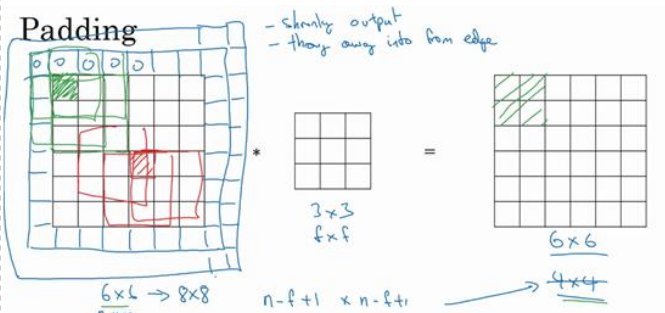 Padding
- shrinky output
- throw away info from edge
0 0 0 0 0
*
=
3×3
f×f
6×6
4×4
6×6 → 8×8
n-f+1 × n-f+1